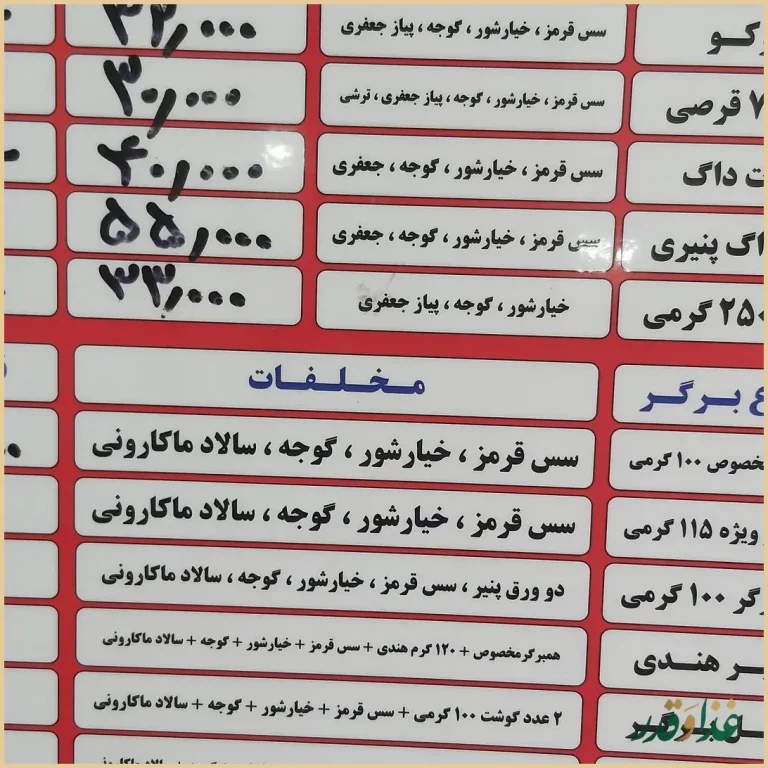 سس قرمز ، خیارشور ، گوجه ، پیاز جعفری ۳۲,۰۰۰
۷ قرصی سس قرمز ، خیارشور ، گوجه ، پیاز جعفری ، ترشی ۳۰,۰۰۰
داگ سس قرمز ، خیارشور ، گوجه ، جعفری ۴۰,۰۰۰
پنیری سس قرمز ، خیارشور ، گوجه ، جعفری ۵۵,۰۰۰
۲۵۰ گرمی خیارشور ، گوجه ، پیاز جعفری ۳۳,۰۰۰
برگر مخلفات
مخصوص ۱۰۰ گرمی سس قرمز ، خیارشور ، گوجه ، سالاد ماکارونی
ویژه ۱۱۵ گرمی سس قرمز ، خیارشور ، گوجه ، سالاد ماکارونی
۱۰۰ گرمی دو ورق پنیر ، سس قرمز ، خیارشور ، گوجه ، سالاد ماکارونی
هندی همبرگرمخصوص + ۱۲۰ گرم هندی + سس قرمز + خیارشور + گوجه + سالاد ماکارونی
۲ عدد گوشت ۱۰۰ گرمی + سس قرمز + خیارشور + گوجه + سالاد ماکارونی